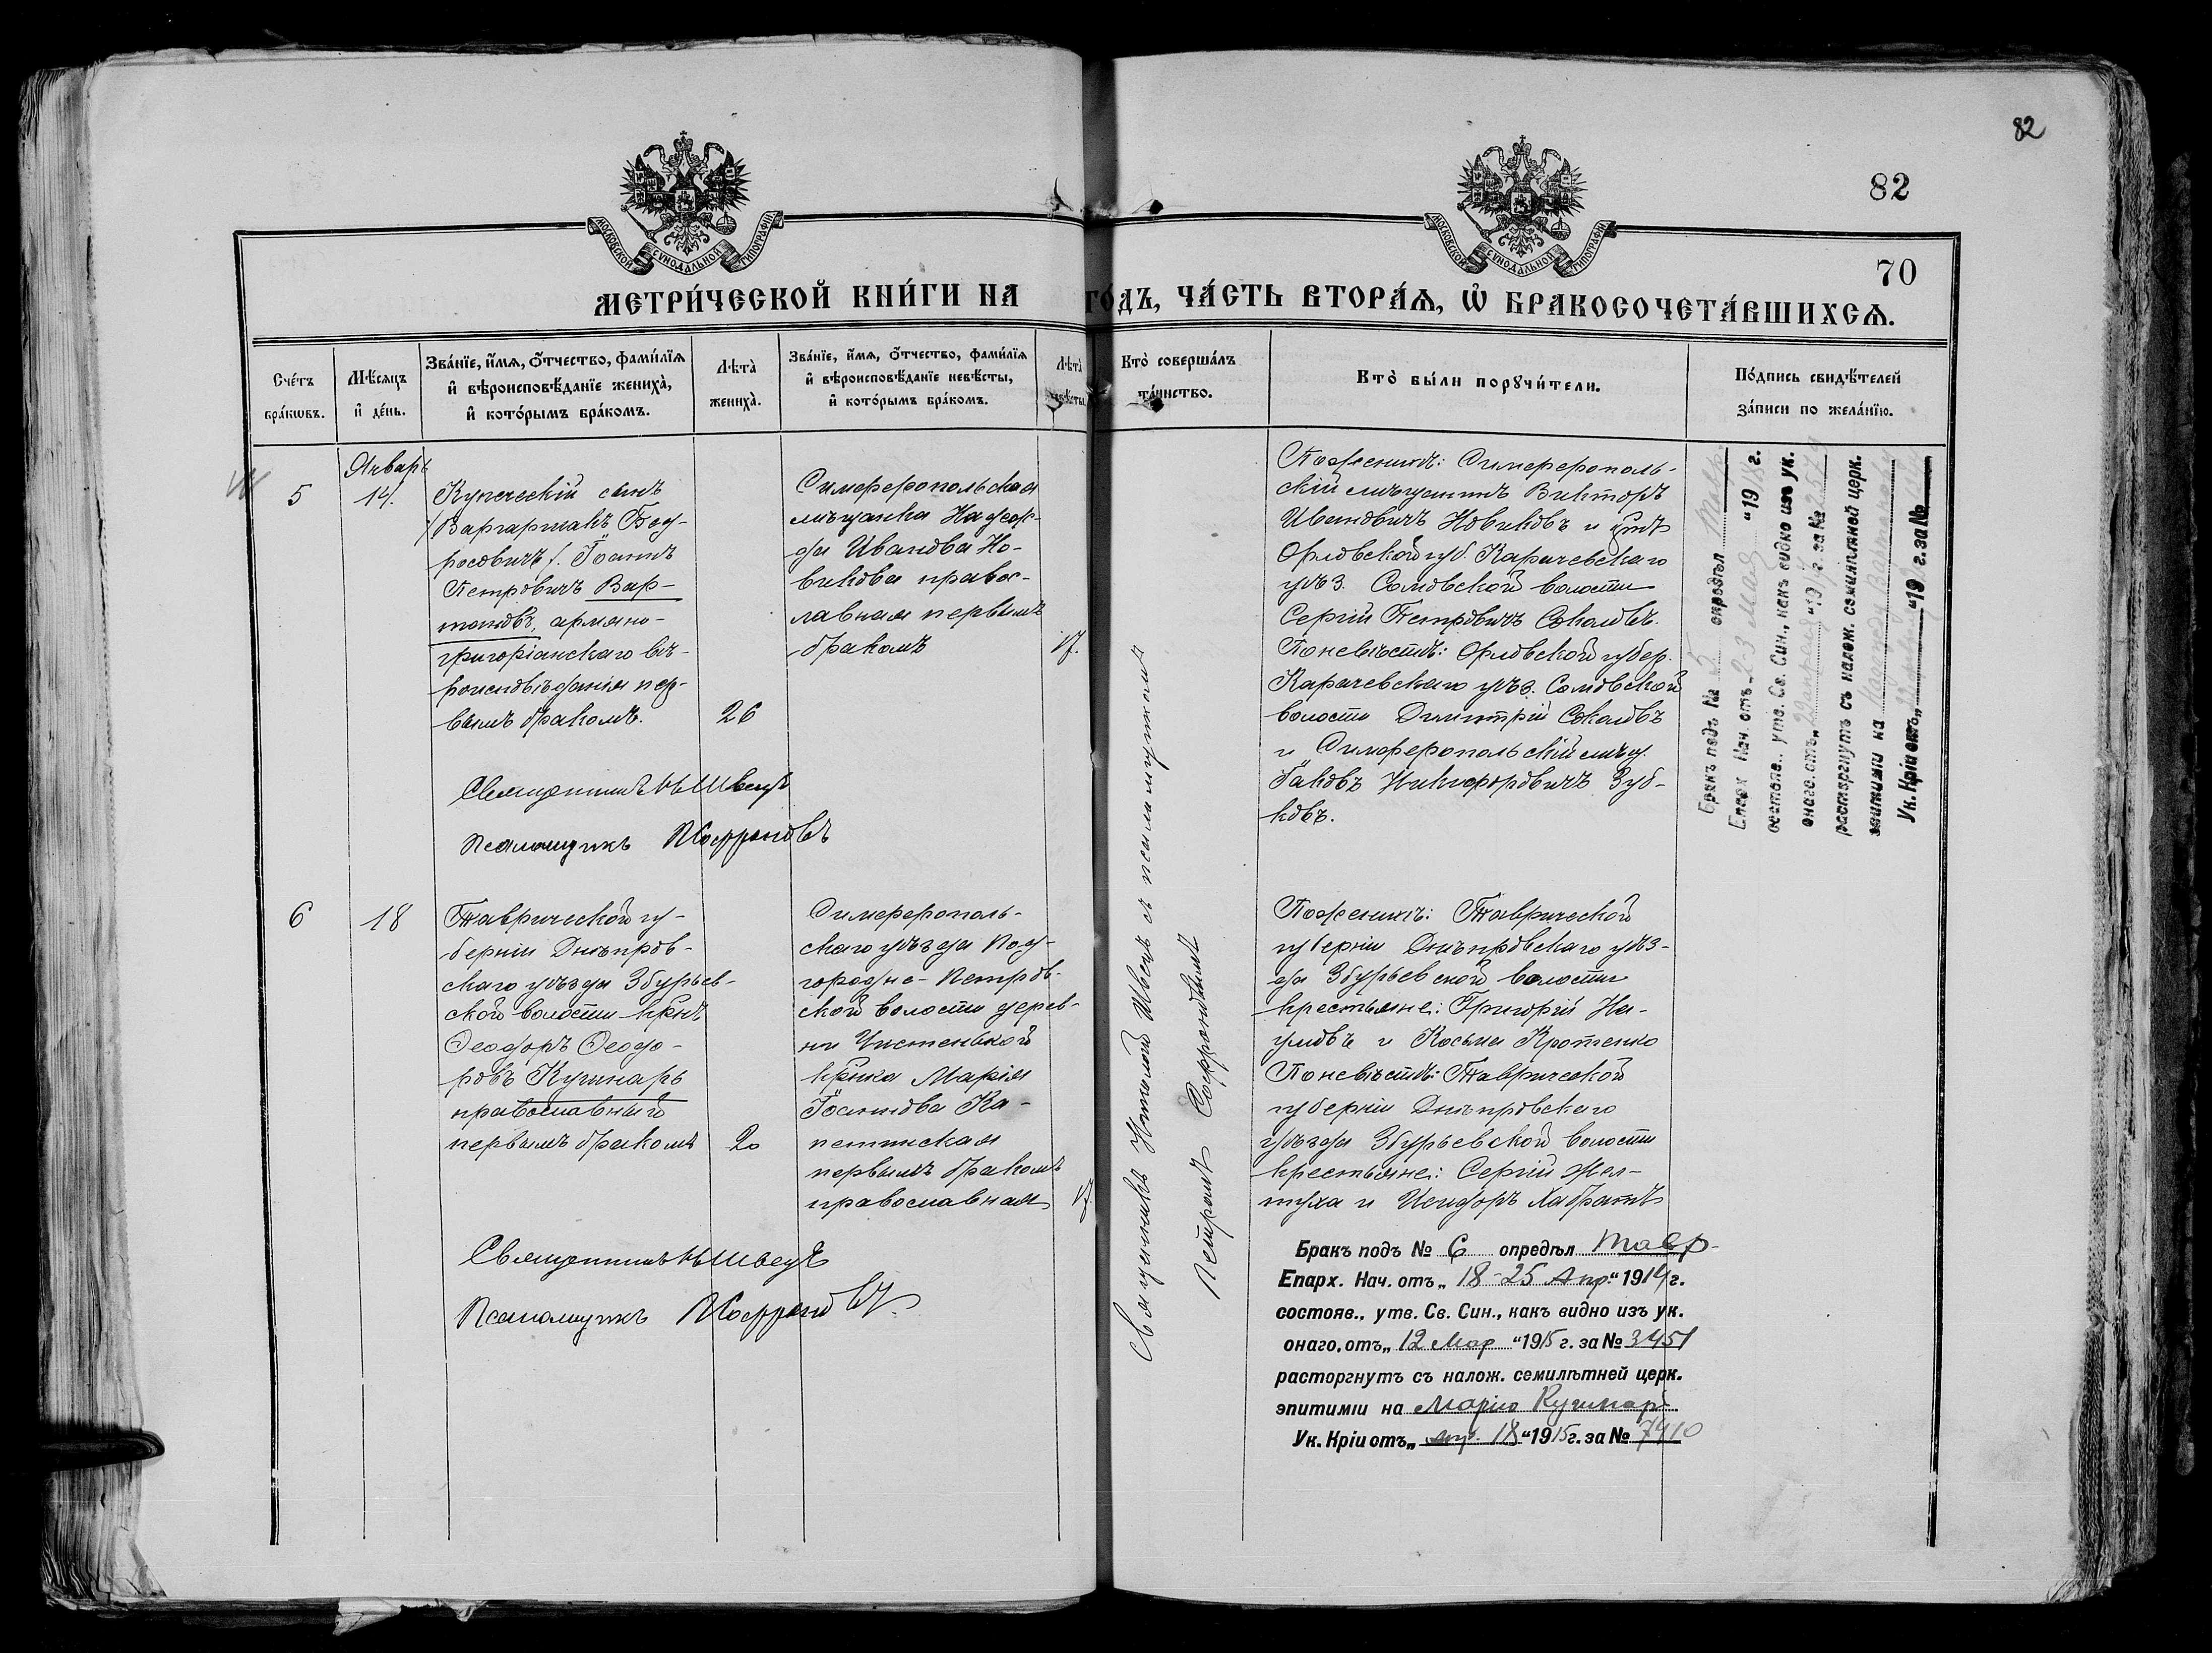 82
82
70
МОСКОВСКОЙ СѴНОДАЛЬНОЙ ТИПОГРАФІИ
МОСКОВСКОЙ СѴНОДАЛЬНОЙ ТИПОГРАФІИ
МЕТРИ́ЧЕСКОЙ КНИ́ГИ НА ГО́ДЪ, ЧА́СТЬ ВТОРА́Ѧ, Ѡ҆ БРАКОСОЧЕТА́ВШИХСѦ.
Сче́тъ
бра́кѡвъ.
Мѣ́сѧцъ
и҆ де́нь.
Зва́нїе, и҆́мѧ, ѻ҆́тчество, фами́лїѧ
и҆ вѣроисповѣ́данїе жениха̀,
и҆ кото́рымъ бра́комъ.
Лѣта̀
жениха̀.
Зва́нїе, и҆́мѧ, ѻ҆́тчество, фами́лїѧ
и҆ вѣроисповѣ́данїе невѣ́сты,
и҆ кото́рымъ бра́комъ.
Лѣта̀
невѣ́сты.
Кто̀ соверша́лъ
та́инство.
Кто̀ бы́ли порꙋчи́тели.
По́дпись свидѣ́телей
за́писи по жела́нїю.
5
Январь
14.
Купеческій сынъ
/Варгаршакъ Бод-
росовичъ/. Іоаннъ
Петровичъ Вар-
тановъ, армяно-
григоріанскаго вѣ-
роисповѣданія пер-
вымъ бракомъ.
26
Симферопольская
мѣщанка Надеж-
да Иванова Но-
викова правос-
лавная первымъ
бракомъ
17.
Священникъ Н Швецъ
Псаломщикъ П Софроновъ
Священникъ Наталій Швецъ съ псаломщикомъ
Петромъ Софроновымъ
По женихѣ: Симферополь-
скій мѣщанинъ Викторъ
Ивановичъ Новиковъ и крнъ
Орловской губ. Карачевскаго
уѣз. Сомовской волости
Сергій Петровичъ Соколовъ.
По невѣстѣ: Орловской губер.
Карачевскаго уѣз. Сомовской
волости Димитрій Соколовъ
и Симферопольскій мѣщ.
Іаковъ Никифоровичъ Зуб-
ковъ.
Бракъ подъ № 5 опредѣл Тавр
Епарх. Нач. отъ „2-3 мая “19 г.
состояв., утв. Св. Син., какъ видно изъ ук.
онаго, отъ „ “19 г. за №
расторгнутъ съ налож. семилѣтней церк.
эпитиміи на Надежду Вартанову
Ук. Кріи отъ „ “19 г. за №
6
18
Таврической гу-
берніи Днѣпров-
скаго уѣзда Збурьев-
ской волости крнъ
Ѳеодоръ Ѳеодо-
ровъ Кучинарь
православный
первымъ бракомъ
20
Симферополь-
скаго уѣзда Под-
городне-Петров-
ской волости дерев-
ни Чистенькой
крнка Марія
Іоаннова Ка-
петинская
первымъ бракомъ
православная
17.
Священникъ Н Швецъ
Псаломщикъ П Софроновъ.
По женихѣ: Таврической
губерніи Днѣпровскаго уѣз-
да Збурьевской волости
крестьяне: Григорій На-
умовъ и Косьма Кротенко
По невѣстѣ: Таврической
губерніи Днѣпровскаго
уѣзда Збурьевской волости
крестьяне: Сергій Жел-
туха и Исидоръ Хабратъ
Бракъ подъ № 6 опредѣл Тавр-
Епарх. Нач. отъ „18-25 Апр.“ 1914 г.
состояв., утв. Св. Син., какъ видно изъ ук.
онаго, отъ „12 Мар “1915 г. за № 3451
расторгнутъ съ налож. семилѣтней церк.
эпитиміи на Марію Кучинарь
Ук. Кріи отъ „апр. 18 “1915 г. за № 7410